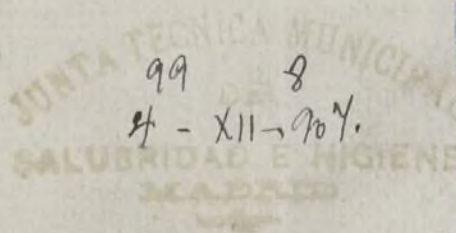 JUNTA TECNICA MUNICIPAL
DE
SALUBRIDAD E HIGIENE
MADRID
99 8
4 - XII - 907.